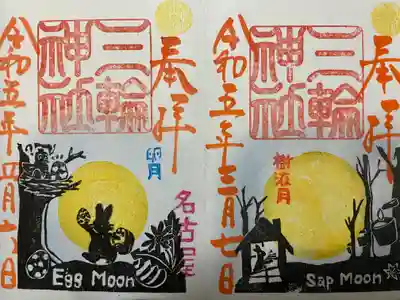 奉拝
三輪
神社
令和五年四月六日
卵月
名古屋
Egg Moon
奉拝
三輪
神社
令和五年三月七日
樹液月
Sap Moon